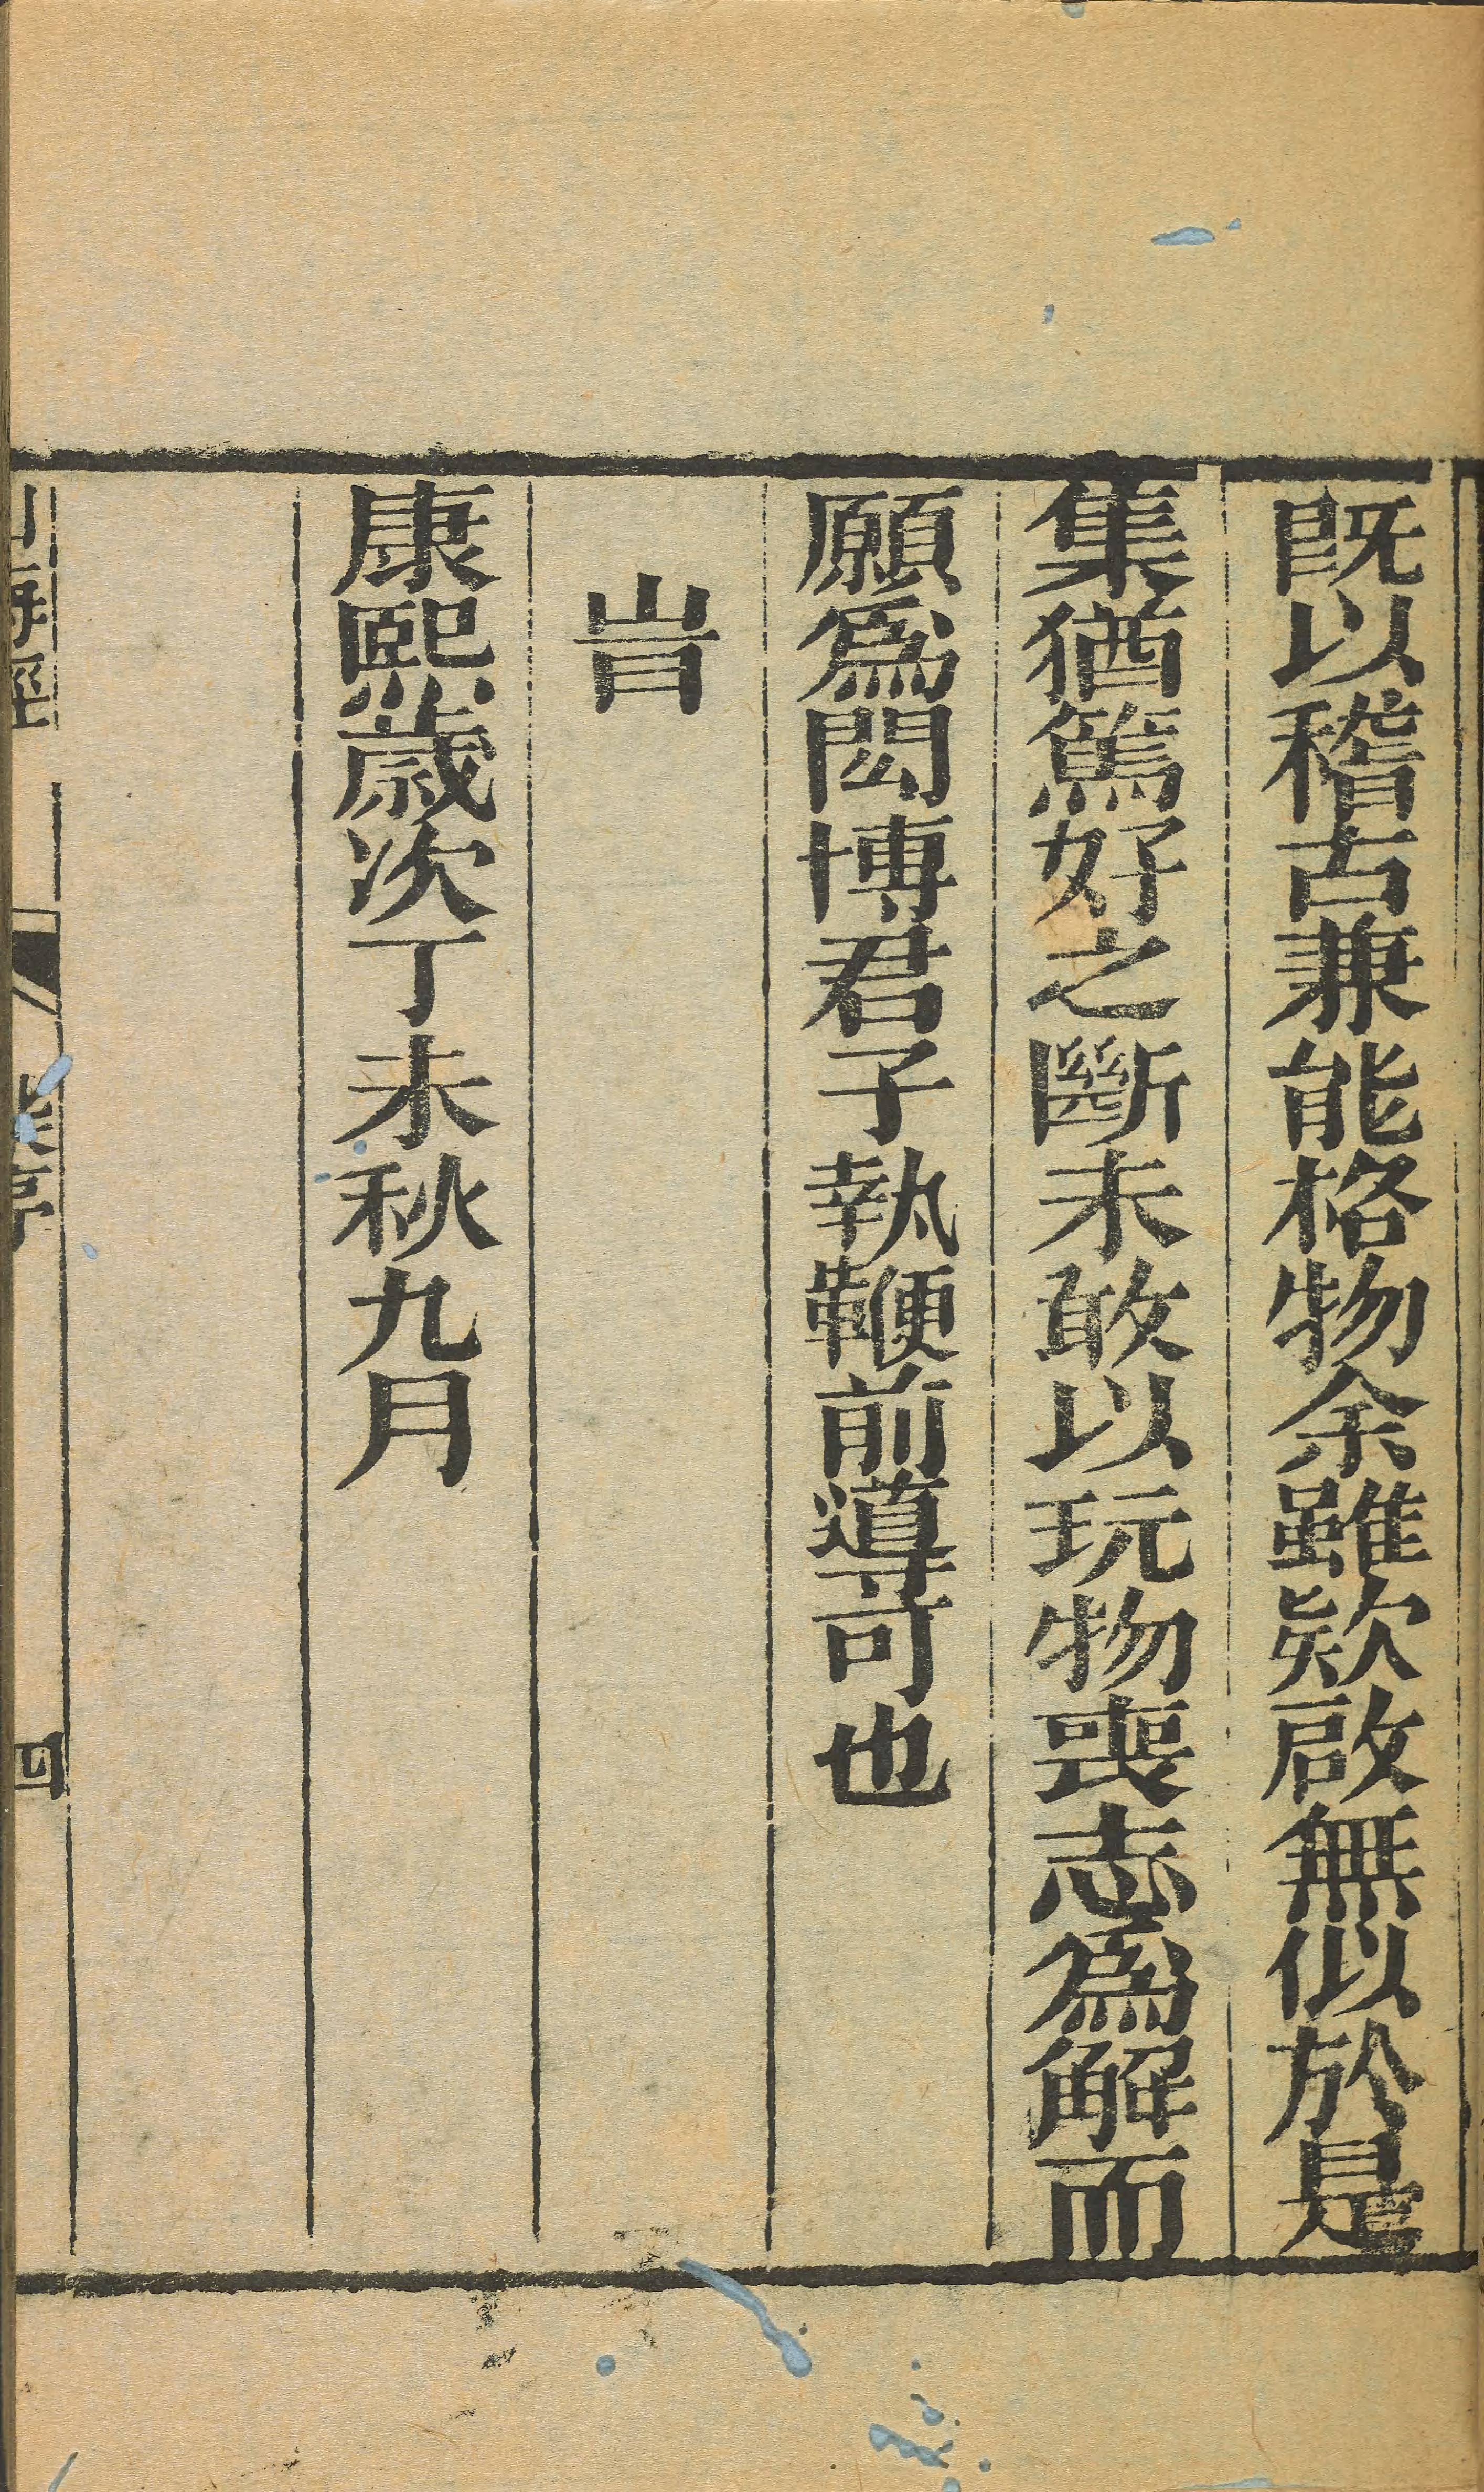 既以稽古兼能格物余雖欵啟無似於是
集猶篤好之斷未敢以玩物喪志爲解而
願爲閎博君子執鞭前導可也
旹
康熙歲次丁未秋九月
山海經 柴序 四